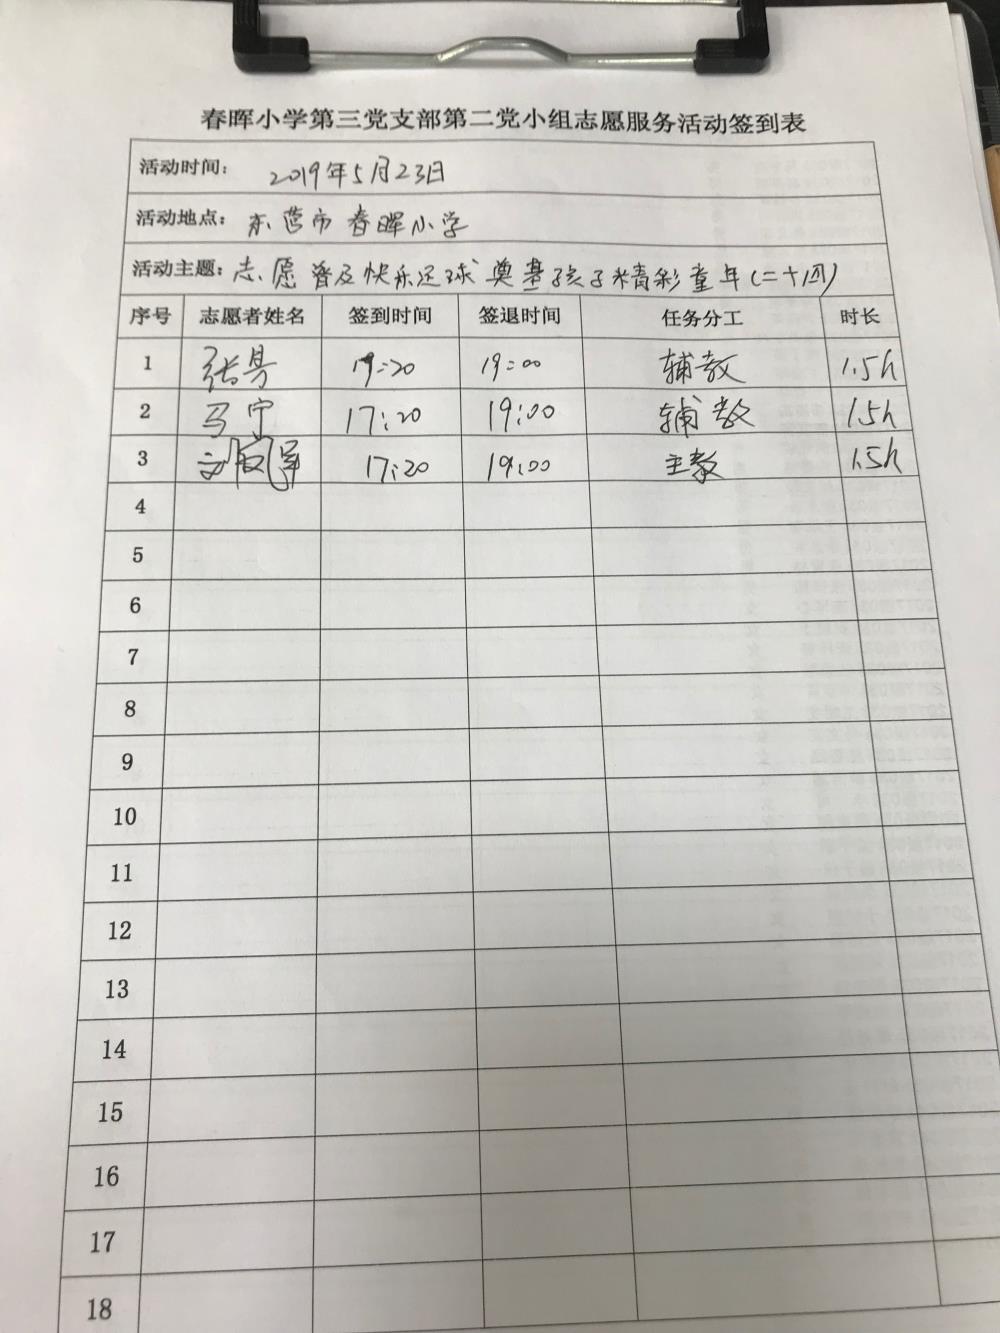 春晖小学第三党支部第二党小组志愿服务活动签到表
活动时间: 2019年5月23日
活动地点: 东营市春晖小学
活动主题: 志愿普及快乐足球 奠基孩子精彩童年(二十四)
序号 志愿者姓名 签到时间 签退时间 任务分工 时长
1 张 :20 19:00 辅教 1.5h
2 马宁 17:20 19:00 辅教 1.5h
3 刘 17:20 19:00 主教 1.5h
4
5
6
7
8
9
10
11
12
13
14
15
16
17
18